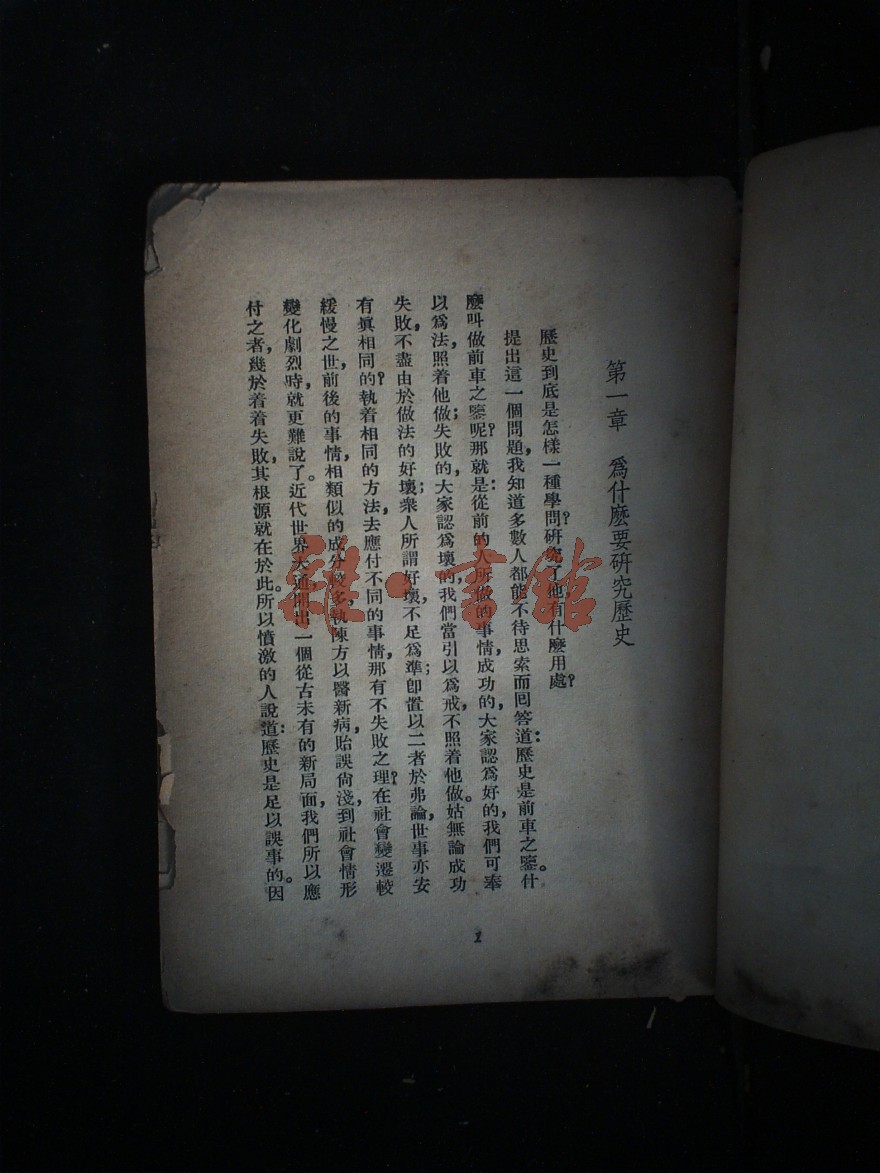 第一章　爲什麽要研究歷史
歷史到底是怎樣一種學問?研究了他,有什麽用處?
提出這一個問題,我知道多數人都能不待思索而囘答道:歷史是前車之鑒。什
麽叫做前車之鑒呢?那就是:從前的人所做的事情,成功的,大家認爲好的,我們可奉
以爲法,照着他做;失敗的,大家認爲壞的,我們當引以爲戒,不照着他做。姑無論成功
失敗,不盡由於做法的好壞;衆人所謂好壞,不足爲準;卽置以二者於弗論,世事亦安
有眞相同的?執着相同的方法,去應付不同的事情,那有不失敗之理?在社會變遷較
緩慢之世,前後的事情,相類似的成分較多,執陳方以醫新病,貽誤尙淺,到社會情形
變化劇烈時,就更難說了。近代世界大通,開出一個從古未有的新局面,我們所以應
付之者,幾於着着失敗,其根源就在於此。所以憤激的人說道:歷史是足以誤事的。因
1
雜·書館